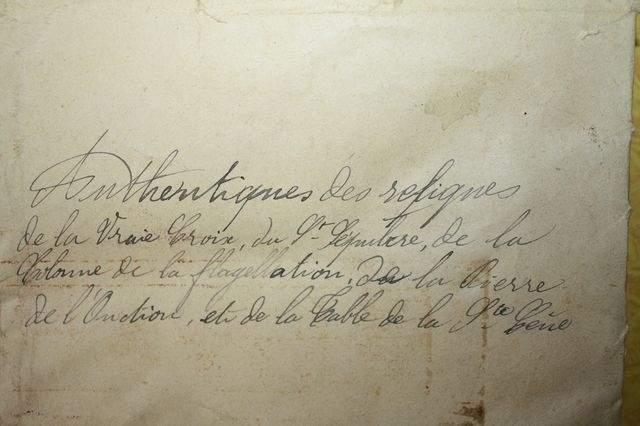 Authentiques des reliques
de la Vraie Croix, du St Sépulcre, de la
Colonne de la flagellation, de la Pierre
de l'Onction, et de la Table de la Ste Cène